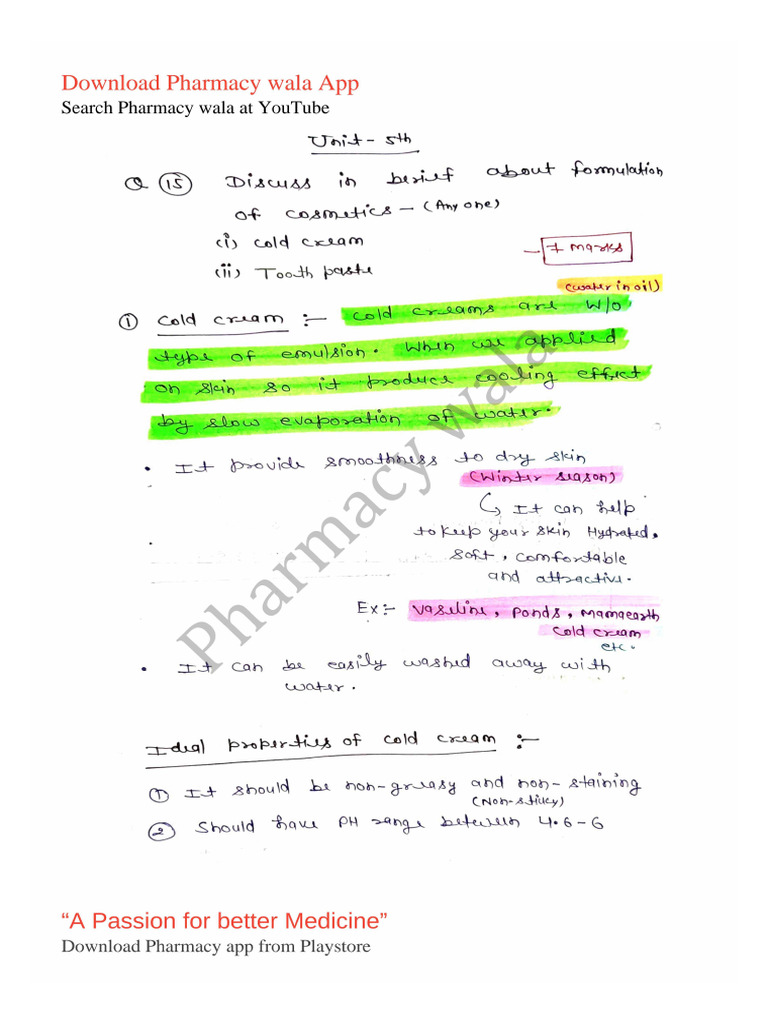 Download Pharmacy wala App
Search Pharmacy wala at YouTube
Unit - 5th
Q (15) Discuss in berief about formulation
of cosmetics - (Any one)
(i) cold cream
- 7 marks
(ii) Tooth paste
(water in oil)
(1) Cold cream :- Cold creams are w/o
type of emulsion. When we applied
on skin so it produce cooling effect
by slow evaporation of water.
• It provide smoothness to dry skin
(Winter season)
↳ It can help
to keep your skin Hydrated,
soft, comfortable
and attractive.
Ex:- Vaseline, Ponds, Mamaearth
cold cream
etc.
• It can be easily washed away with
water.
Ideal properties of cold cream :-
(1) It should be non-greasy and non-staining
(Non-sticky)
(2) Should have PH range between 4.6-6
Pharmacy wala
“A Passion for better Medicine”
Download Pharmacy app from Playstore